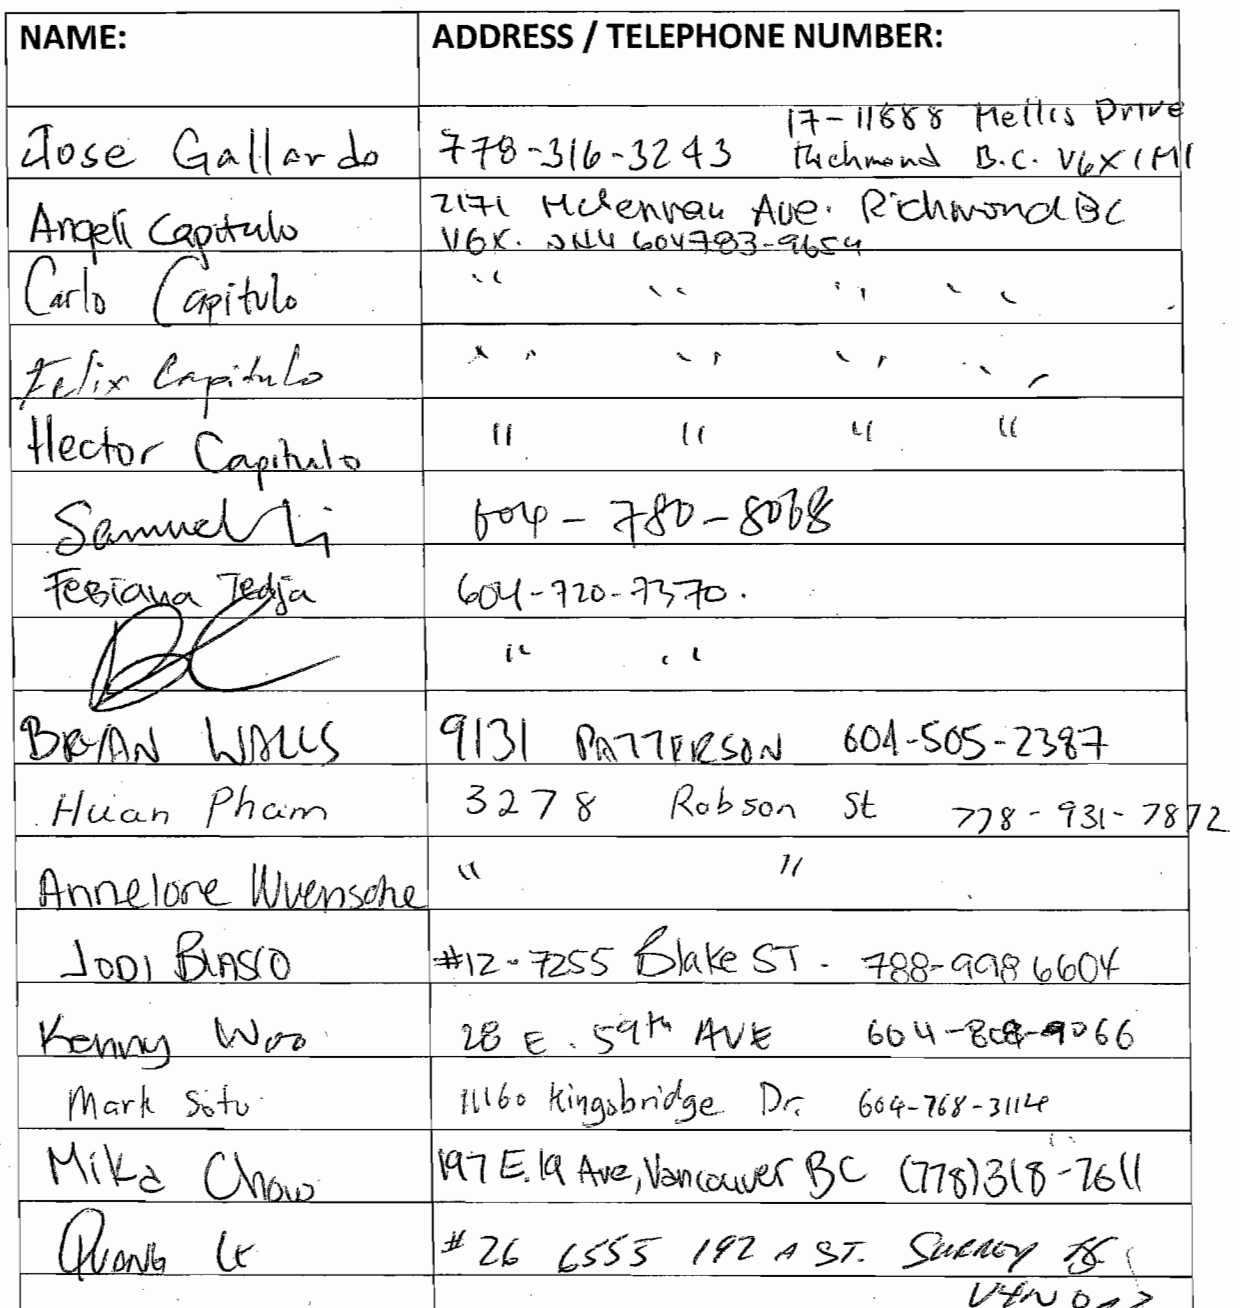 NAME: ADDRESS / TELEPHONE NUMBER:
17-11888 Mellis Drive
Jose Gallardo 778-316-3243 Richmond B.C. V6X 1M1
2171 McLennan Ave. Richmond BC
Angeli Capitulo V6X. 604783-9654
Carlo Capitulo " " " "
Felix Capitulo " " " "
Hector Capitulo " " " "
Samuel Li 604-780-8068
Febiana Tedja 604-720-7370.
" "
BRIAN WALLS 9131 PATTERSON 604-505-2387
Huan Pham 3278 Robson St 778-931-7872
Annelore Wuensche " "
JODI BLASCO #12-7255 Blake ST. 788-998 6604
Kenny Woo 28 E. 59th AVE 604-808-9066
Mark Sotu 11160 Kingsbridge Dr. 604-768-3114
Mika Chow 197 E. 19 Ave, Vancouver BC (778)318-7611
QUANG LE #26 6555 192 A ST. SURREY BC
V4N